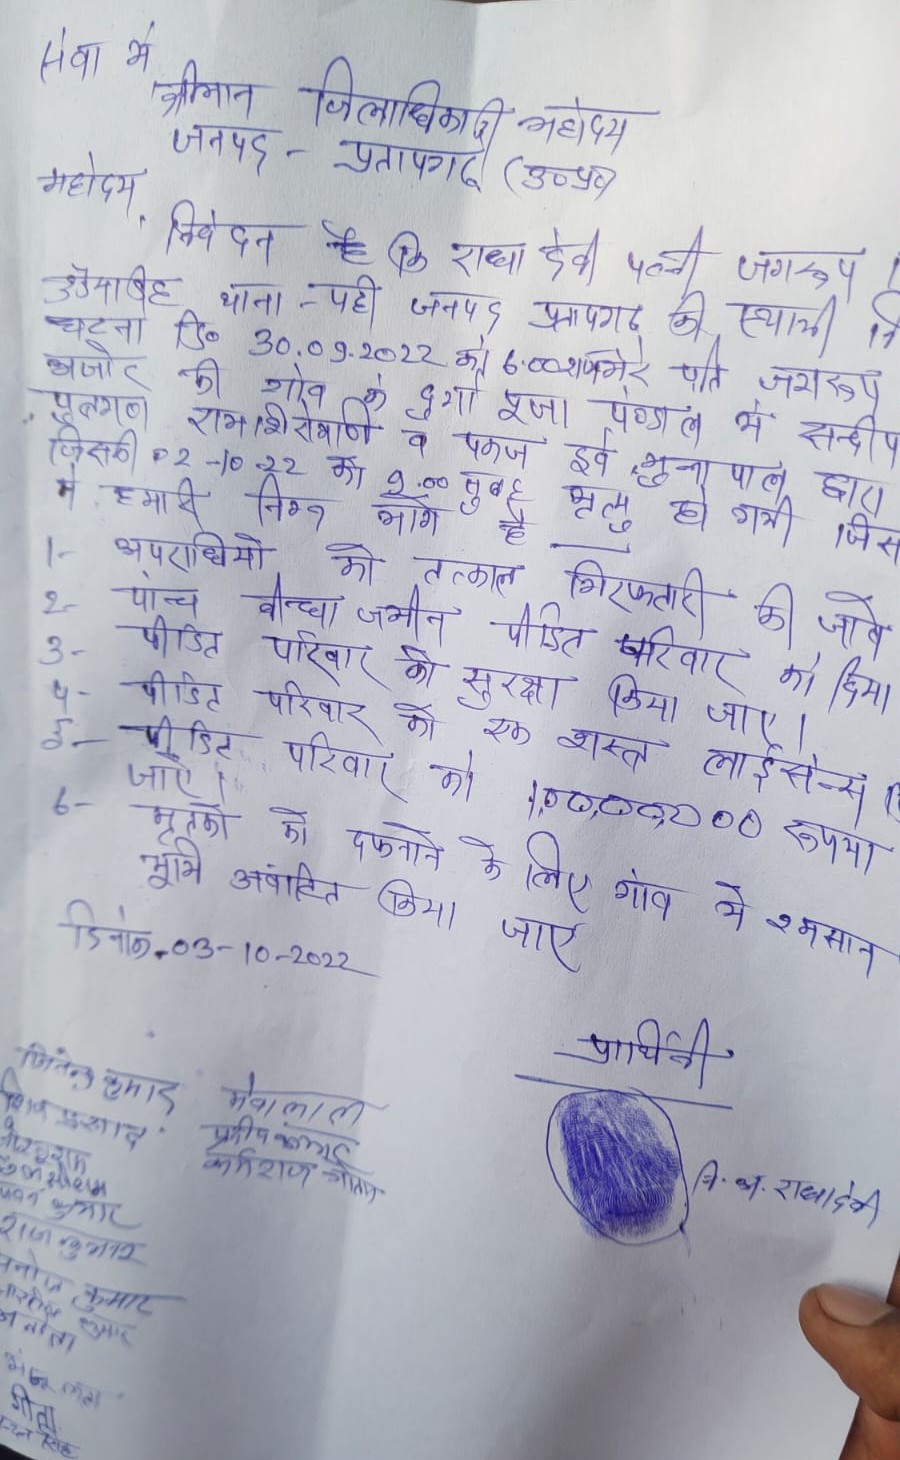 सेवा में
श्रीमान जिलाधिकारी महोदय
जनपद - प्रतापगढ़ (उ०प्र०)
महोदय,
निवेदन है कि राधा देवी पत्नी जगरूप
थाना - पट्टी जनपद प्रतापगढ़ की स्थायी
घटना दि० 30.09.2022 को 6.00 मेरे पति जगरूप
की गांव के दुर्गा पूजा पण्डाल में सन्दीप
रामशिरोमणि व पंकज भुना पाल द्वारा
जिसकी 02-10-22 को 9.00 सुबह मृत्यु हो गयी जिस
में हमारी निम्न मांग है
1- अपराधियो को तत्काल गिरफ्तारी की जावे
2- पांच बीन्घा जमीन पीडित परिवार को दिया
3- पीडित परिवार को सुरक्षा किया जाए।
4- पीडित परिवार को एक शस्त्र लाईसेन्स
5- पीडित परिवार को रूपया
जाए।
6- मृतको को दफनाने के लिए गांव में श्मसान
भूमि अवांटित किया जाए
दिनांक 03-10-2022
प्रार्थिनी
नि. अ. राधा देवी
जितेन्द्र कुमार मेवालाल
प्रसाद प्रदीप कुमार
कर्मराज गौतम
कुमार
राज कुमार
मनोज कुमार
कुमार
गीता